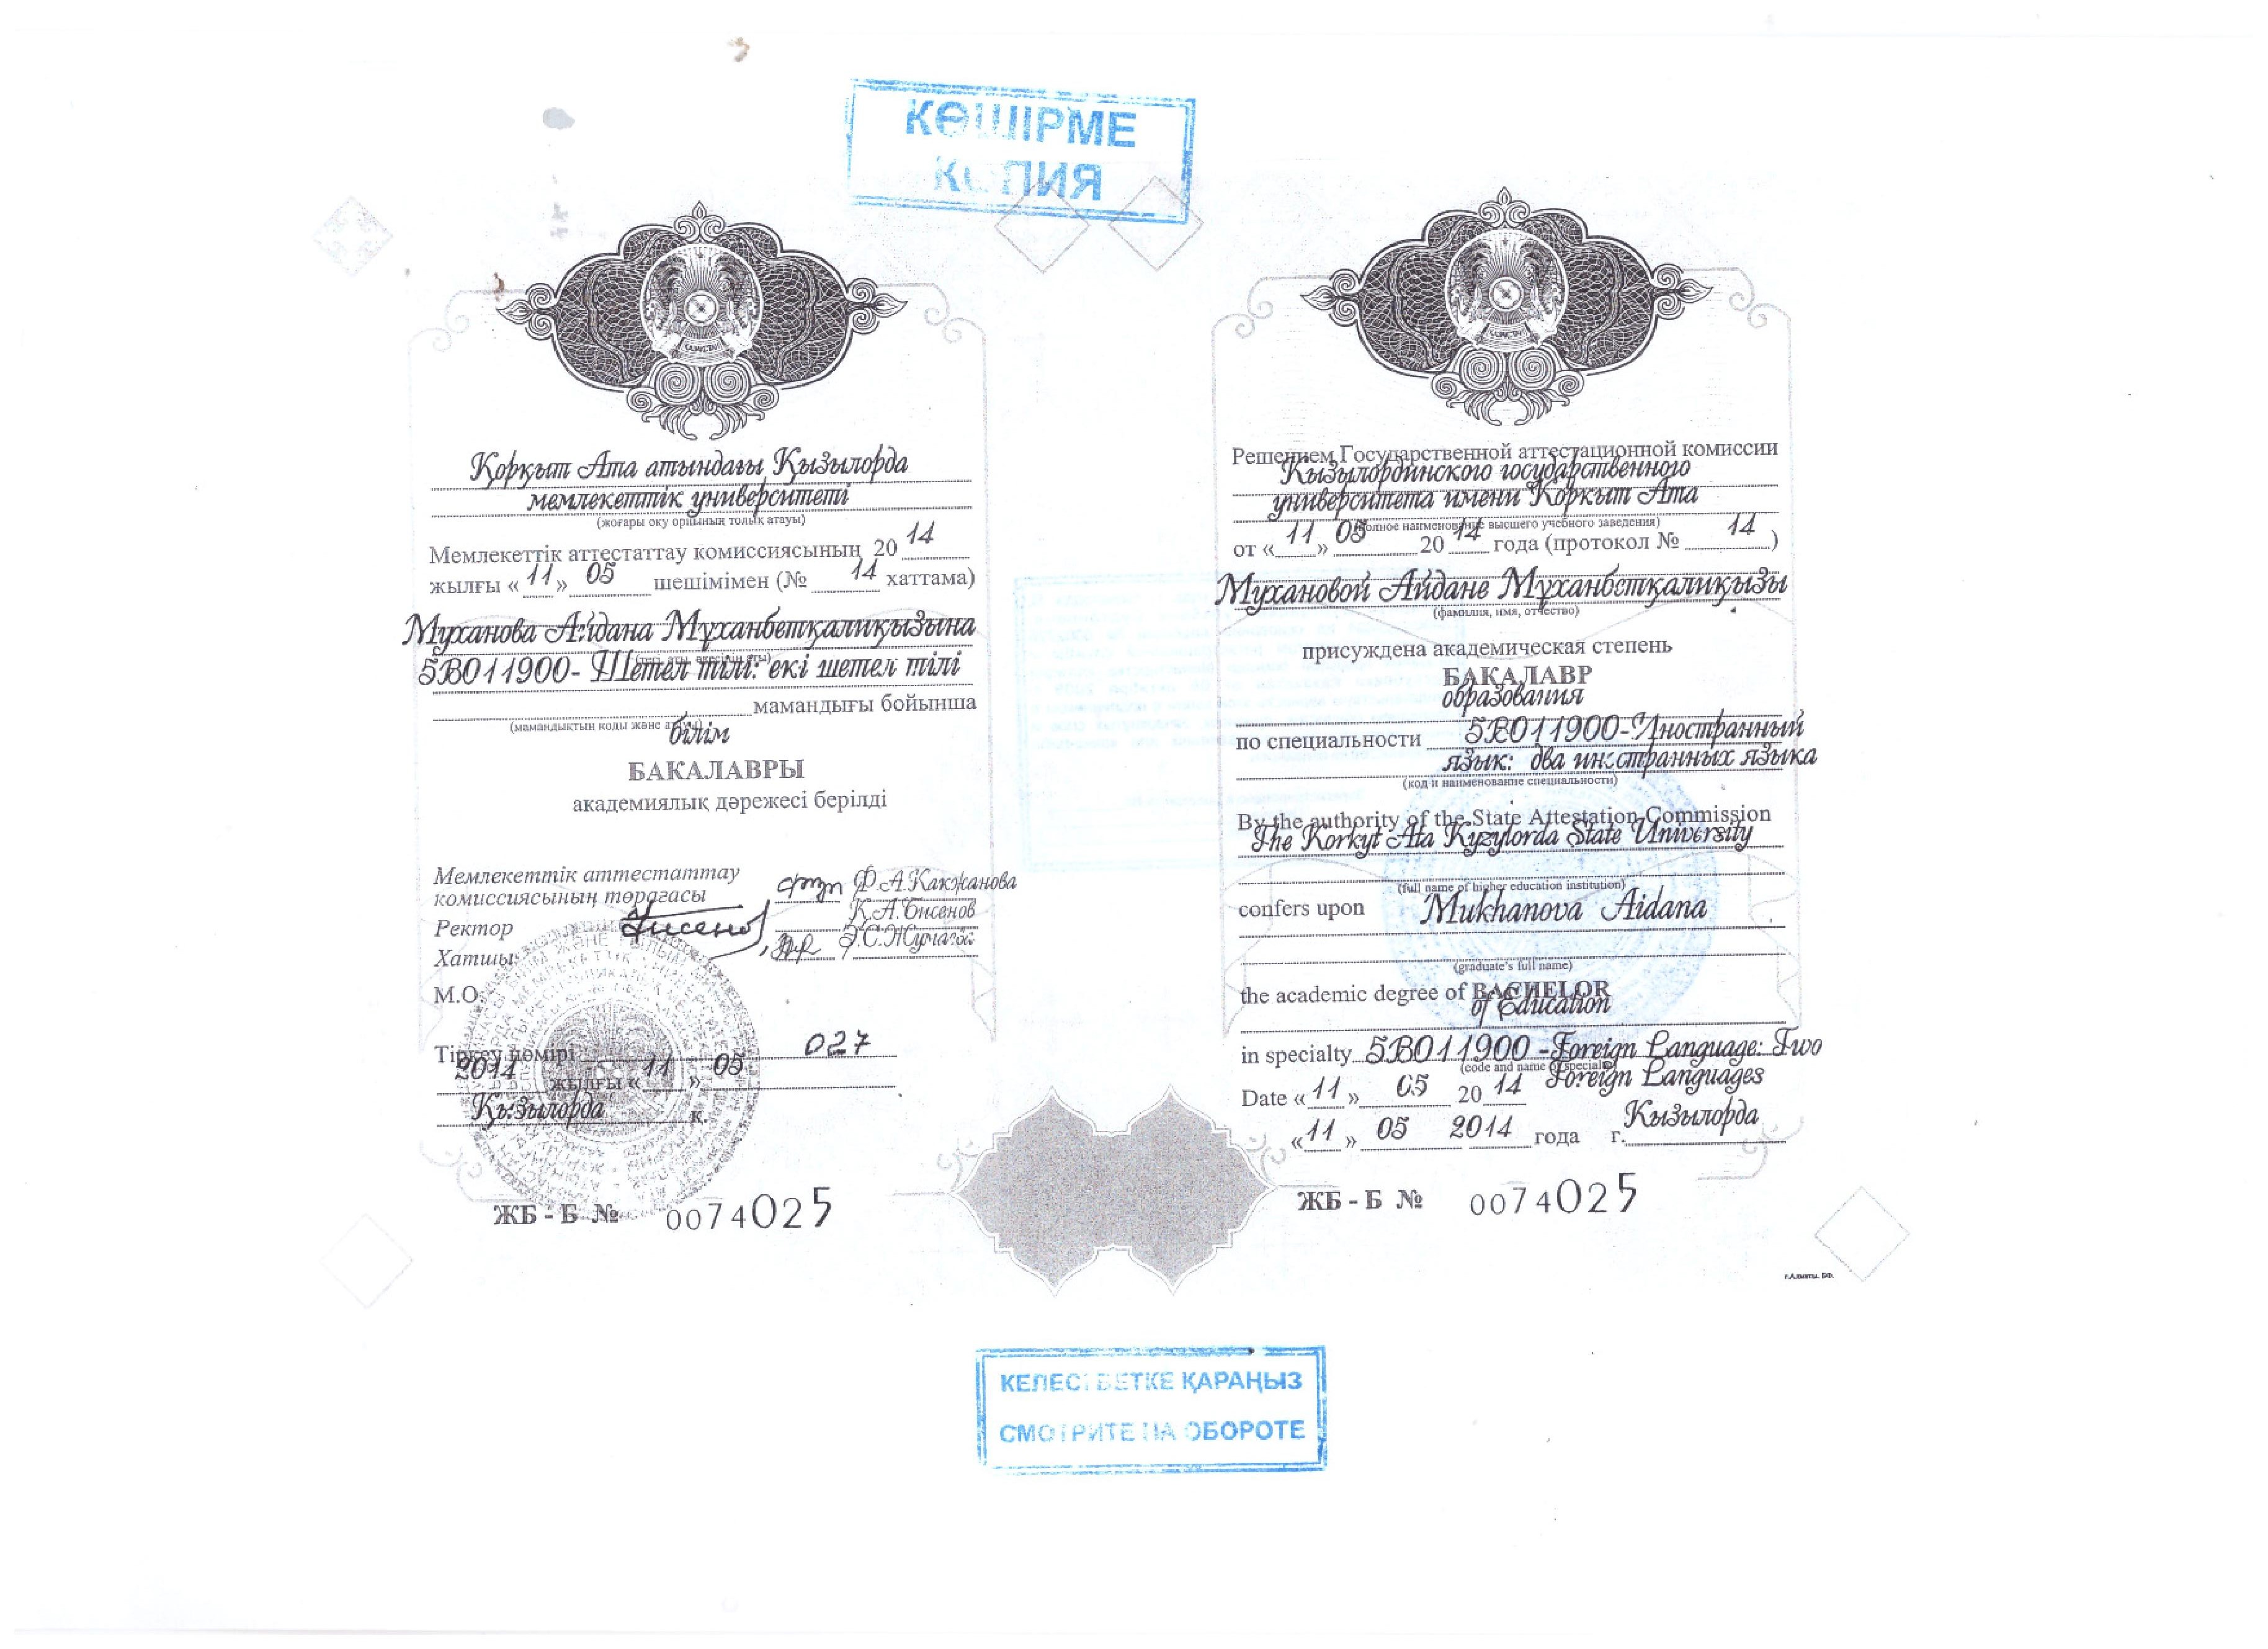 КӨШІРМЕ
КОПИЯ
Қорқыт Ата атындағы Қызылорда
мемлекеттік университеті
(жоғары оқу орнының толық атауы)
Мемлекеттік аттестаттау комиссиясының 20 14
жылғы « 11 » 05 шешімімен (№ 14 хаттама)
Муханова Айдана Мұханбетқалиқызына
(тегі, аты, әкесінің аты)
5В011900- Шетел тілі: екі шетел тілі
мамандығы бойынша
(мамандықтың коды және атауы)
білім
БАКАЛАВРЫ
академиялық дәрежесі берілді
Мемлекеттік аттестаттау
комиссиясының төрағасы Ф.А.Какжанова
Ректор К.А.Бисенов
Хатшы
М.О.
Тіркеу нөмірі 027
2014 жылғы « 11 » 05
Қызылорда қ.
ЖБ - Б № 0074025
Решением Государственной аттестационной комиссии
Кызылординского государственного
университета имени Коркыт Ата
(полное наименование высшего учебного заведения)
от « 11 » 05 20 14 года (протокол № 14 )
Мухановой Айдане Мұханбетқалиқызы
(фамилия, имя, отчество)
присуждена академическая степень
БАКАЛАВР
образования
по специальности 5В011900-Иностранный
язык: два иностранных языка
(код и наименование специальности)
By the authority of the State Attestation Commission
The Korkyt Ata Kyzylorda State University
(full name of higher education institution)
confers upon Mukhanova Aidana
(graduate's full name)
the academic degree of BACHELOR
of Education
in specialty 5B011900 -Foreign Language: Two
(code and name of specialty)
Foreign Languages
Date « 11 » 05 20 14
« 11 » 05 2014 года г. Кызылорда
ЖБ - Б № 0074025
г.Алматы. БФ.
КЕЛЕСІ БЕТКЕ ҚАРАҢЫЗ
СМОТРИТЕ НА ОБОРОТЕ